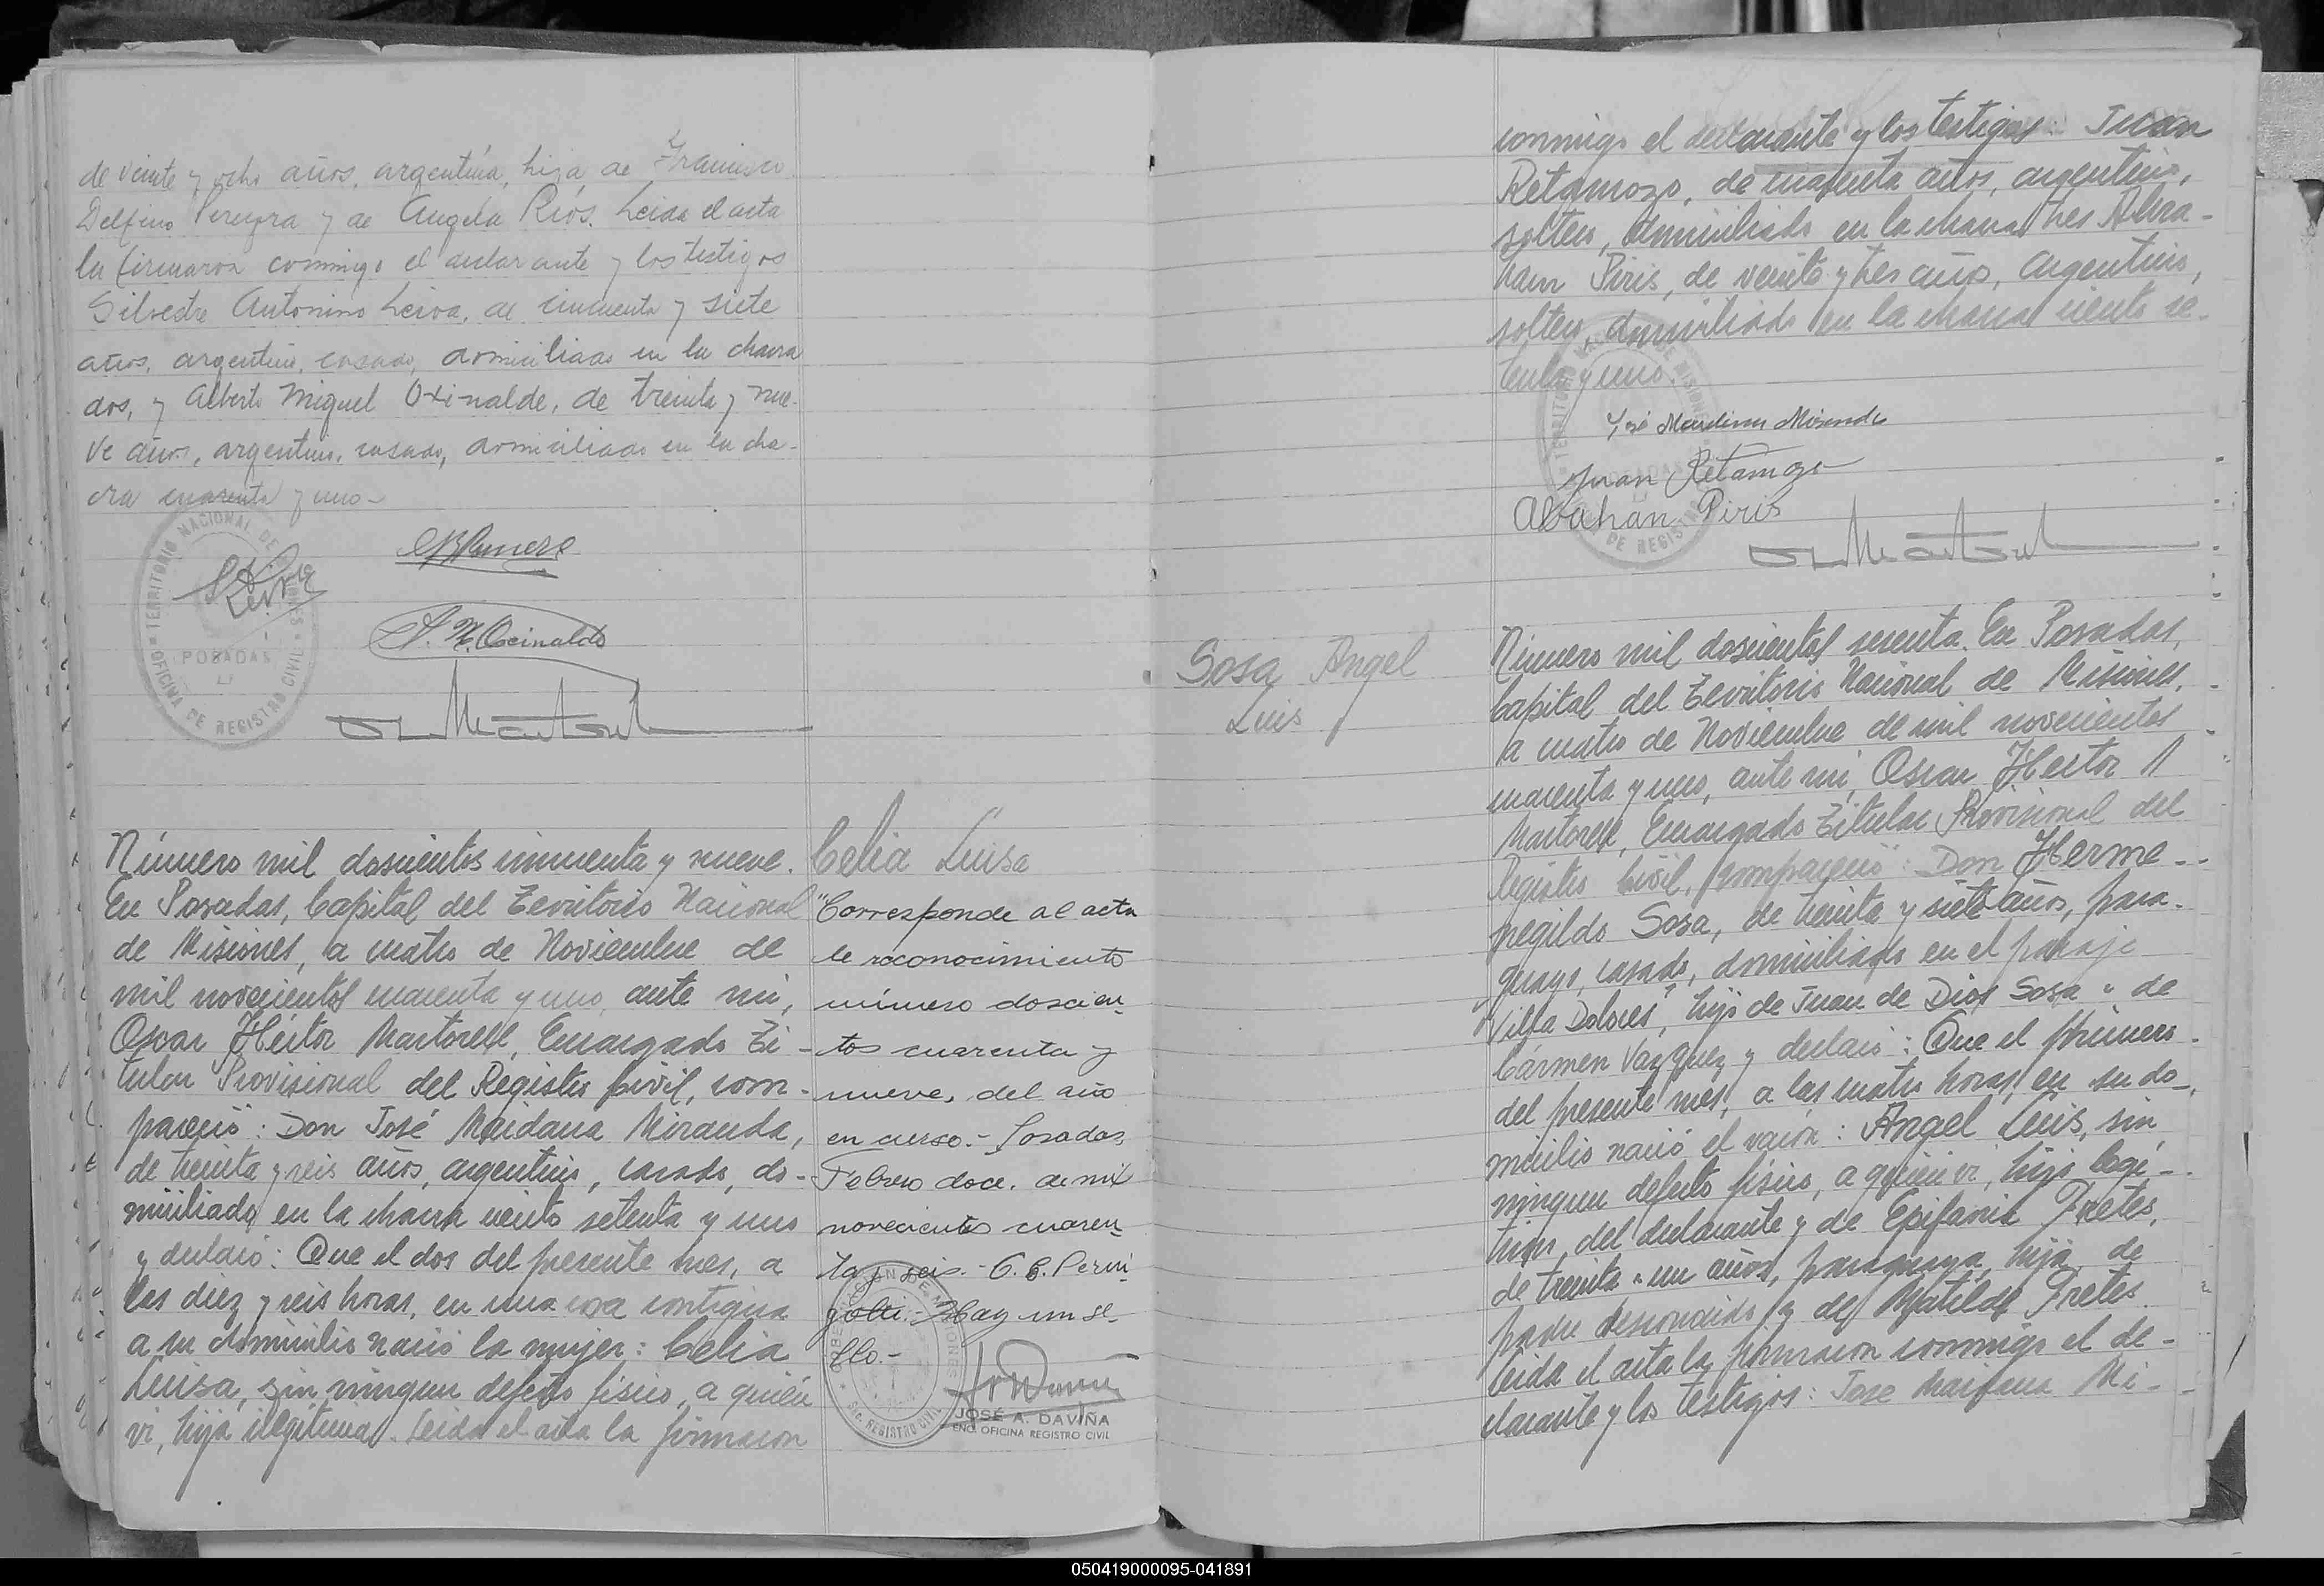 de veinte y ocho años, argentina, hija de Francisco
Delfino Pereyra y de Angela Rios. Leida el acta
la firmaron conmigo el declarante y los testigos
Silvestre Antonino Leiva, de cincuenta y siete
años, argentino, casado, domiciliado en la chacra
dos, y Alberto Miguel Oxinalde, de treinta y nue-
ve años, argentino, casado, domiciliado en la cha-
cra cuarenta y uno-
TERRITORIO NACIONAL DE MISIONES
POSADAS
OFICINA DE REGISTRO CIVIL
Número mil doscientos cincuenta y nueve.
En Posadas, Capital del Territorio Nacional
de Misiones, a cuatro de Noviembre de
mil novecientos cuarenta y uno, ante mi,
Oscar Héctor Martorell, Encargado Ti-
tular Provisional del Registro Civil, com-
pareció: Don José Maidana Miranda,
de treinta y seis años, argentino, casado, do-
miciliado en la chacra ciento setenta y uno
y declaró: Que el dos del presente mes, a
las diez y seis horas, en una casa contigua
a su domicilio nació la mujer: Celia
Luisa, sin ningun defecto fisico, a quien
vi, hija ilegitima. Leida el acta la firmaron
Celia Luisa
"Corresponde al acta
de reconocimiento
número doscien-
tos cuarenta y
nueve, del año
en curso.- Posadas,
Febrero doce, de mil
novecientos cuaren-
ta y seis.-
Hay un se-
llo.-
JOSÉ A. DAVIÑA
ENC. OFICINA REGISTRO CIVIL
conmigo el declarante y los testigos: Juan
Retamozo, de cuarenta años, argentino,
soltero, domiciliado en la chacra tres Abra-
ham Piris, de veinte y tres años, argentino,
soltero, domiciliado en la chacra ciento se-
tenta y uno.
José Maidana Miranda
Juan Retamozo
Abrahan Piris
Sosa Angel
Luis
Número mil doscientos sesenta. En Posadas,
Capital del Territorio Nacional de Misiones,
a cuatro de Noviembre de mil novecientos
cuarenta y uno, ante mi, Oscar Hector
Martorell, Encargado Titular Provisional del
Registro Civil, compareció: Don Herme-
negildo Sosa, de treinta y siete años, para-
guayo, casado, domiciliado en el paraje
"Villa Dolores", hijo de Juan de Dios Sosa y de
Cármen Vazquez y declaró: Que el primero
del presente mes, a las cuatro horas, en su do-
micilio nació el varón: Angel Luis, sin
ningun defecto fisico, a quien vi, hijo legi-
timo, del declarante y de Epifania Fretes,
de treinta y un años, paraguaya, hija de
padre desconocido y de Matilde Fretes.
Leida el acta la firmaron conmigo el de-
clarante y los testigos: Jose Maidana Mi-
050419000095-041891